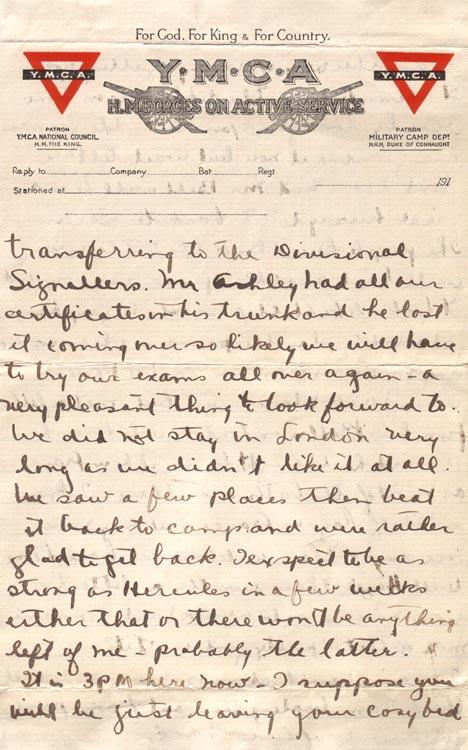 For God, For King & For Country.
Y·M·C·A
H.M. FORCES ON ACTIVE SERVICE
Y.M.C.A.
Y.M.C.A.
PATRON
Y.M.C.A. NATIONAL COUNCIL.
H.M. THE KING.
PATRON
MILITARY CAMP DEPT
H.R.H. DUKE OF CONNAUGHT
Reply to Company Bat Regt 191
Stationed at
transferring to the Divisional
Signallers. Mr Ashley had all our
certificates in his trunk and he lost
it coming over so likely we will have
to try our exams all over again - a
very pleasant thing to look forward to.
We did not stay in London very
long as we didn't like it at all.
We saw a few places then beat
it back to camp and were rather
glad to get back. I expect to be as
strong as Hercules in a few weeks
either that or there won't be anything
left of me - probably the latter.
It is 3 PM here now - I suppose you
will be just leaving your cosy bed